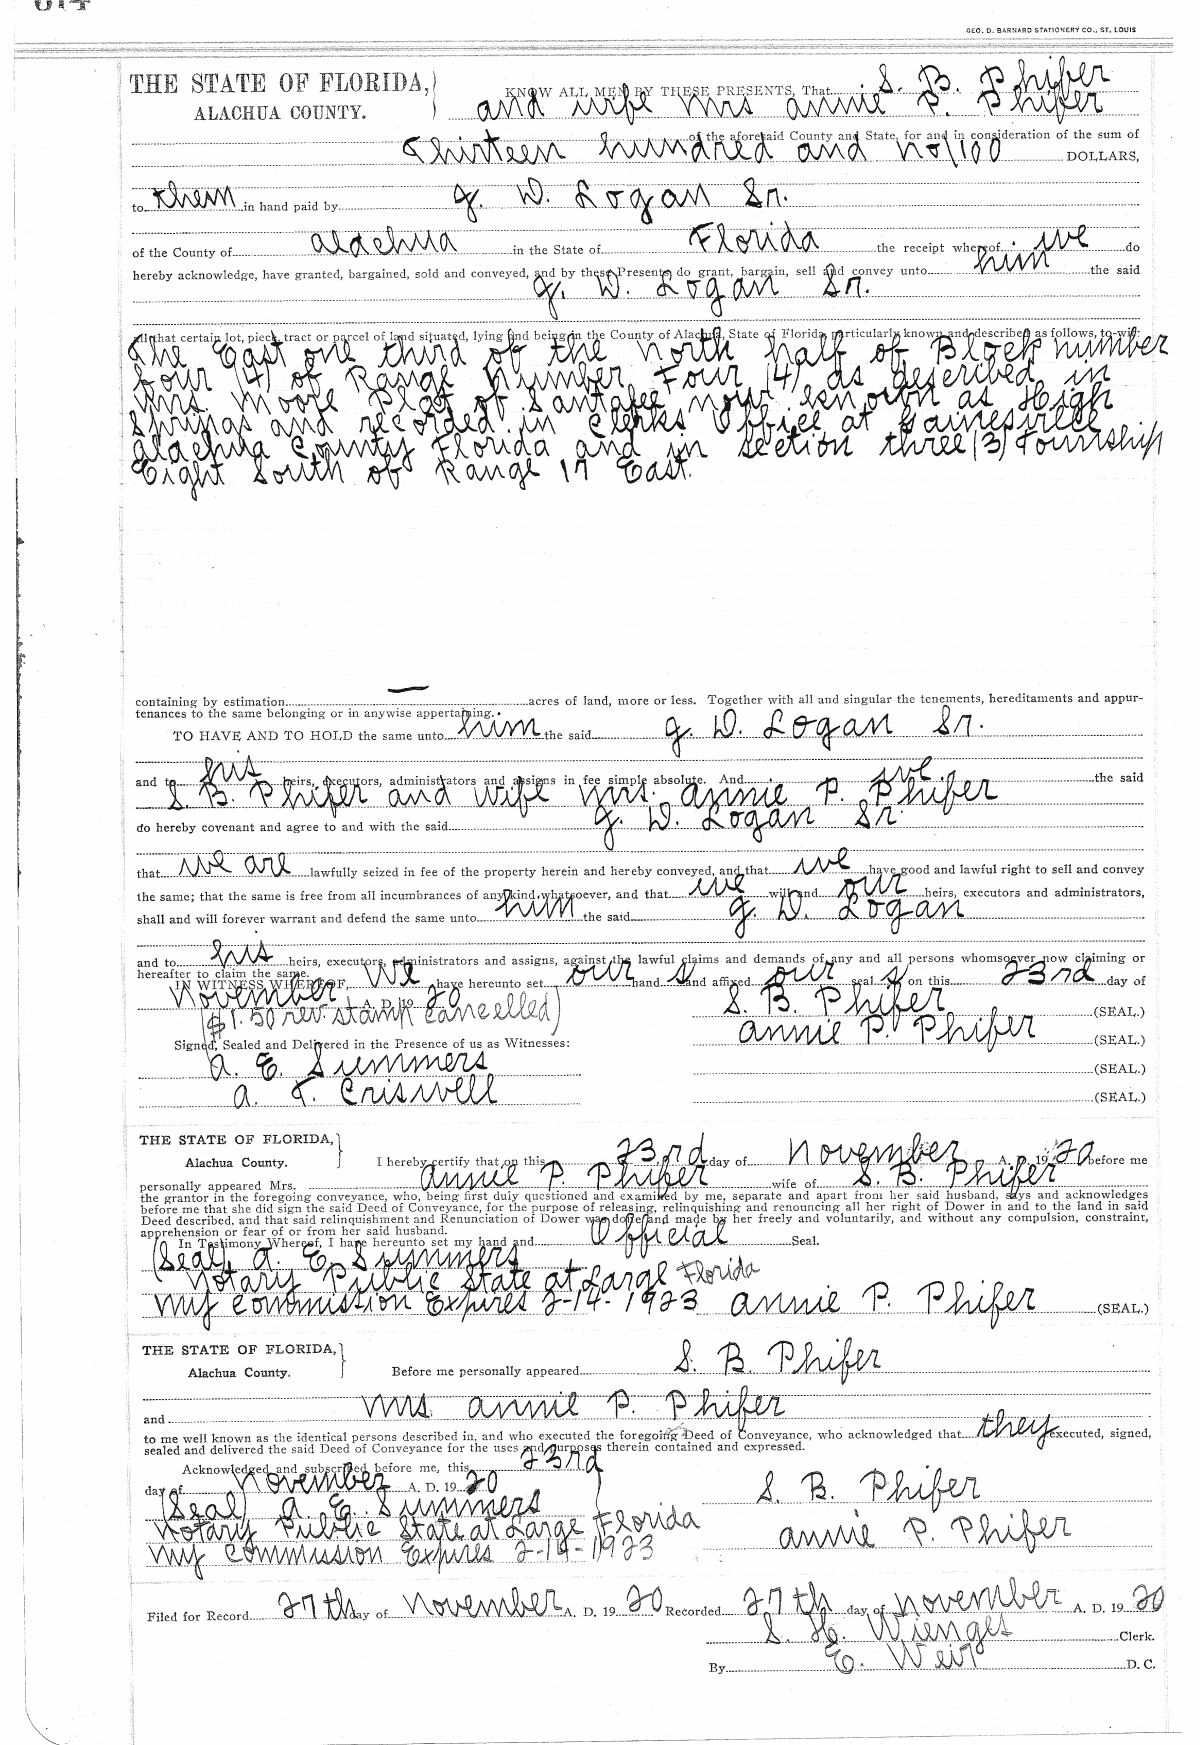 GEO. D. BARNARD STATIONERY CO., ST. LOUIS
THE STATE OF FLORIDA,
ALACHUA COUNTY.
KNOW ALL MEN BY THESE PRESENTS, That S. B. Phifer
and wife Mrs Annie P. Phifer
of the aforesaid County and State, for and in consideration of the sum of
Thirteen hundred and no/100 DOLLARS,
to them in hand paid by G. W. Logan Sr.
of the County of Alachua in the State of Florida the receipt whereof we do
hereby acknowledge, have granted, bargained, sold and conveyed, and by these Presents do grant, bargain, sell and convey unto him the said
G. W. Logan Sr.
All that certain lot, piece, tract or parcel of land situated, lying and being in the County of Alachua, State of Florida, particularly known and described as follows, to-wit:
The East one third of the North half of Block number
four (4) of Range Number Four (4) as described in
Mrs. Moore Plat of Santaffee now known as High
Springs and recorded in Clerks Office at Gainesville
Alachua County Florida and in Section three (3) Township
Eight South of Range 17 East.
containing by estimation — acres of land, more or less. Together with all and singular the tenements, hereditaments and appur-
tenances to the same belonging or in anywise appertaining.
TO HAVE AND TO HOLD the same unto him the said G. W. Logan Sr.
and to his heirs, executors, administrators and assigns in fee simple absolute. And we the said
S. B. Phifer and wife Mrs. Annie P. Phifer
do hereby covenant and agree to and with the said G. W. Logan Sr
that we are lawfully seized in fee of the property herein and hereby conveyed, and that we have good and lawful right to sell and convey
the same; that the same is free from all incumbrances of any kind whatsoever, and that we will and our heirs, executors and administrators,
shall and will forever warrant and defend the same unto him the said G. W. Logan
and to his heirs, executors, administrators and assigns, against the lawful claims and demands of any and all persons whomsoever now claiming or
hereafter to claim the same.
IN WITNESS WHEREOF, We have hereunto set our hand s and affixed our seal s on this 23rd day of
November A. D. 19 20
($1.50 rev. stamp cancelled)
S. B. Phifer (SEAL.)
Annie P. Phifer (SEAL.)
Signed, Sealed and Delivered in the Presence of us as Witnesses:
A. E. Summers (SEAL.)
A. T. Criswell (SEAL.)
THE STATE OF FLORIDA,
Alachua County.
I hereby certify that on this 23rd day of November A. D. 19 20 before me
personally appeared Mrs. Annie P. Phifer wife of S. B. Phifer
the grantor in the foregoing conveyance, who, being first duly questioned and examined by me, separate and apart from her said husband, says and acknowledges
before me that she did sign the said Deed of Conveyance, for the purpose of releasing, relinquishing and renouncing all her right of Dower in and to the land in said
Deed described, and that said relinquishment and Renunciation of Dower was done and made by her freely and voluntarily, and without any compulsion, constraint,
apprehension or fear of or from her said husband.
In Testimony Whereof, I have hereunto set my hand and Official Seal.
(Seal) A. E. Summers
Notary Public State at Large Florida
My Commission Expires 2-14-1923 Annie P. Phifer (SEAL.)
THE STATE OF FLORIDA,
Alachua County.
Before me personally appeared S. B. Phifer
and Mrs. Annie P. Phifer
to me well known as the identical persons described in, and who executed the foregoing Deed of Conveyance, who acknowledged that they executed, signed,
sealed and delivered the said Deed of Conveyance for the uses and purposes therein contained and expressed.
Acknowledged and subscribed before me, this 23rd
day of November A. D. 19 20
S. B. Phifer
(Seal) A. E. Summers
Notary Public State at Large Florida
Annie P. Phifer
My Commission Expires 2-14-1923
Filed for Record 27th day of November A. D. 19 20 Recorded 27th day of November A. D. 19 20
S. H. Wienges Clerk.
By E. Weir D. C.